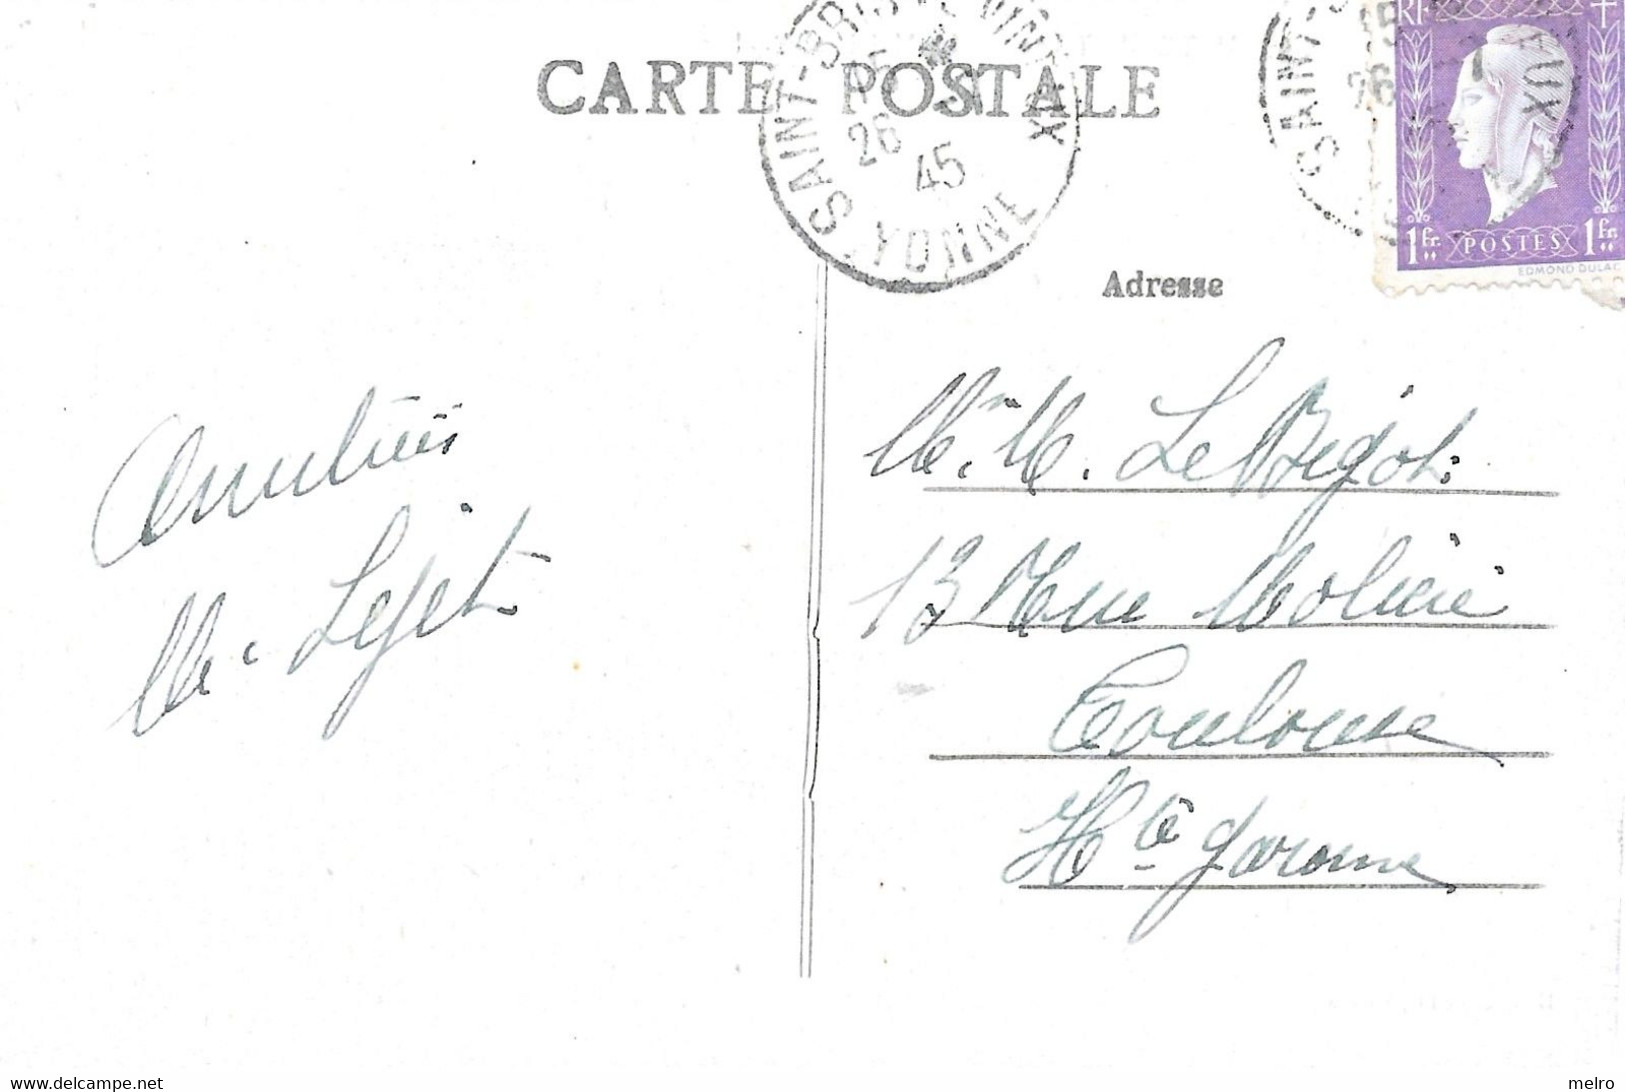 CARTE POSTALE
SAINT-BRIS-LE-VINEUX
26
45
YONNE
RF
1 Fr. POSTES 1 Fr.
EDMOND DULAC
Adresse
Amitiés
Lejet
M. M. Le Bigot
13 Rue Molière
Toulouse
Hte Garonne
www.delcampe.net
melro